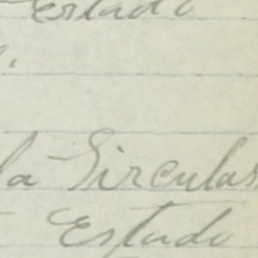 Estado
la Circulas
Estado